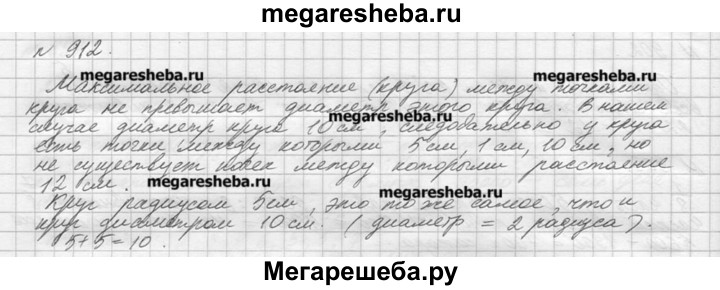 megaresheba.ru
№ 912.
megaresheba.ru megaresheba.ru
Максимальное расстояние (круга) между точками
круга не превышает диаметр этого круга. В нашем
случае диаметр круга 10 см, следовательно у круга
есть точки между которыми 5 см, 1 см, 10 см, но
не существует точек между которыми расстояние
megaresheba.ru megaresheba.ru
12 см.
Круг радиусом 5 см, это то же самое, что и
круг диаметром 10 см. (диаметр = 2 радиуса).
5+5=10.
Мегарешеба.ру